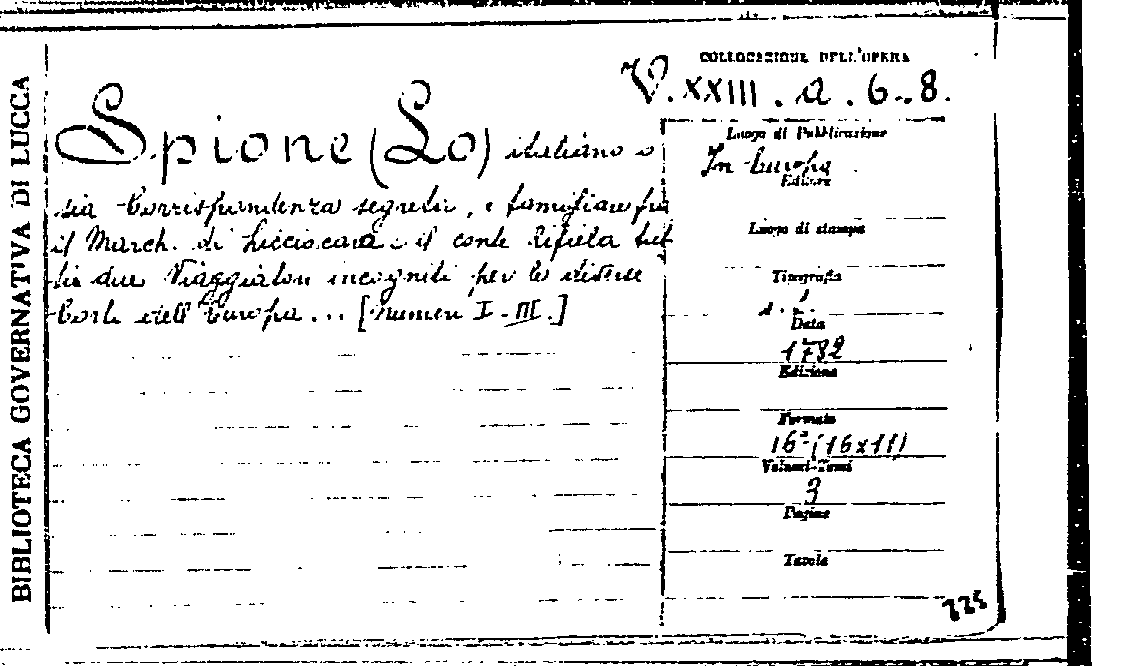 BIBLIOTECA GOVERNATIVA DI LUCCA
COLLOCAZIONE DELL'OPERA
V. XXIII. a. 6..8.
Spione (Lo) italiano o
sia Corrispondenza segreta, e famigliare fra
il March. di Licciocara e il conte Rifiela tut
ti due Viaggiatori incogniti per le diverse
Corti dell'Europa... [Numeri I-III.]
Luogo di Pubblicazione
In Europa
Editore
Luogo di stampa
Tipografia
Data
1782
Edizione
Formato
16° (16x11)
Volumi-Tomi
3
Pagine
Tavole
225